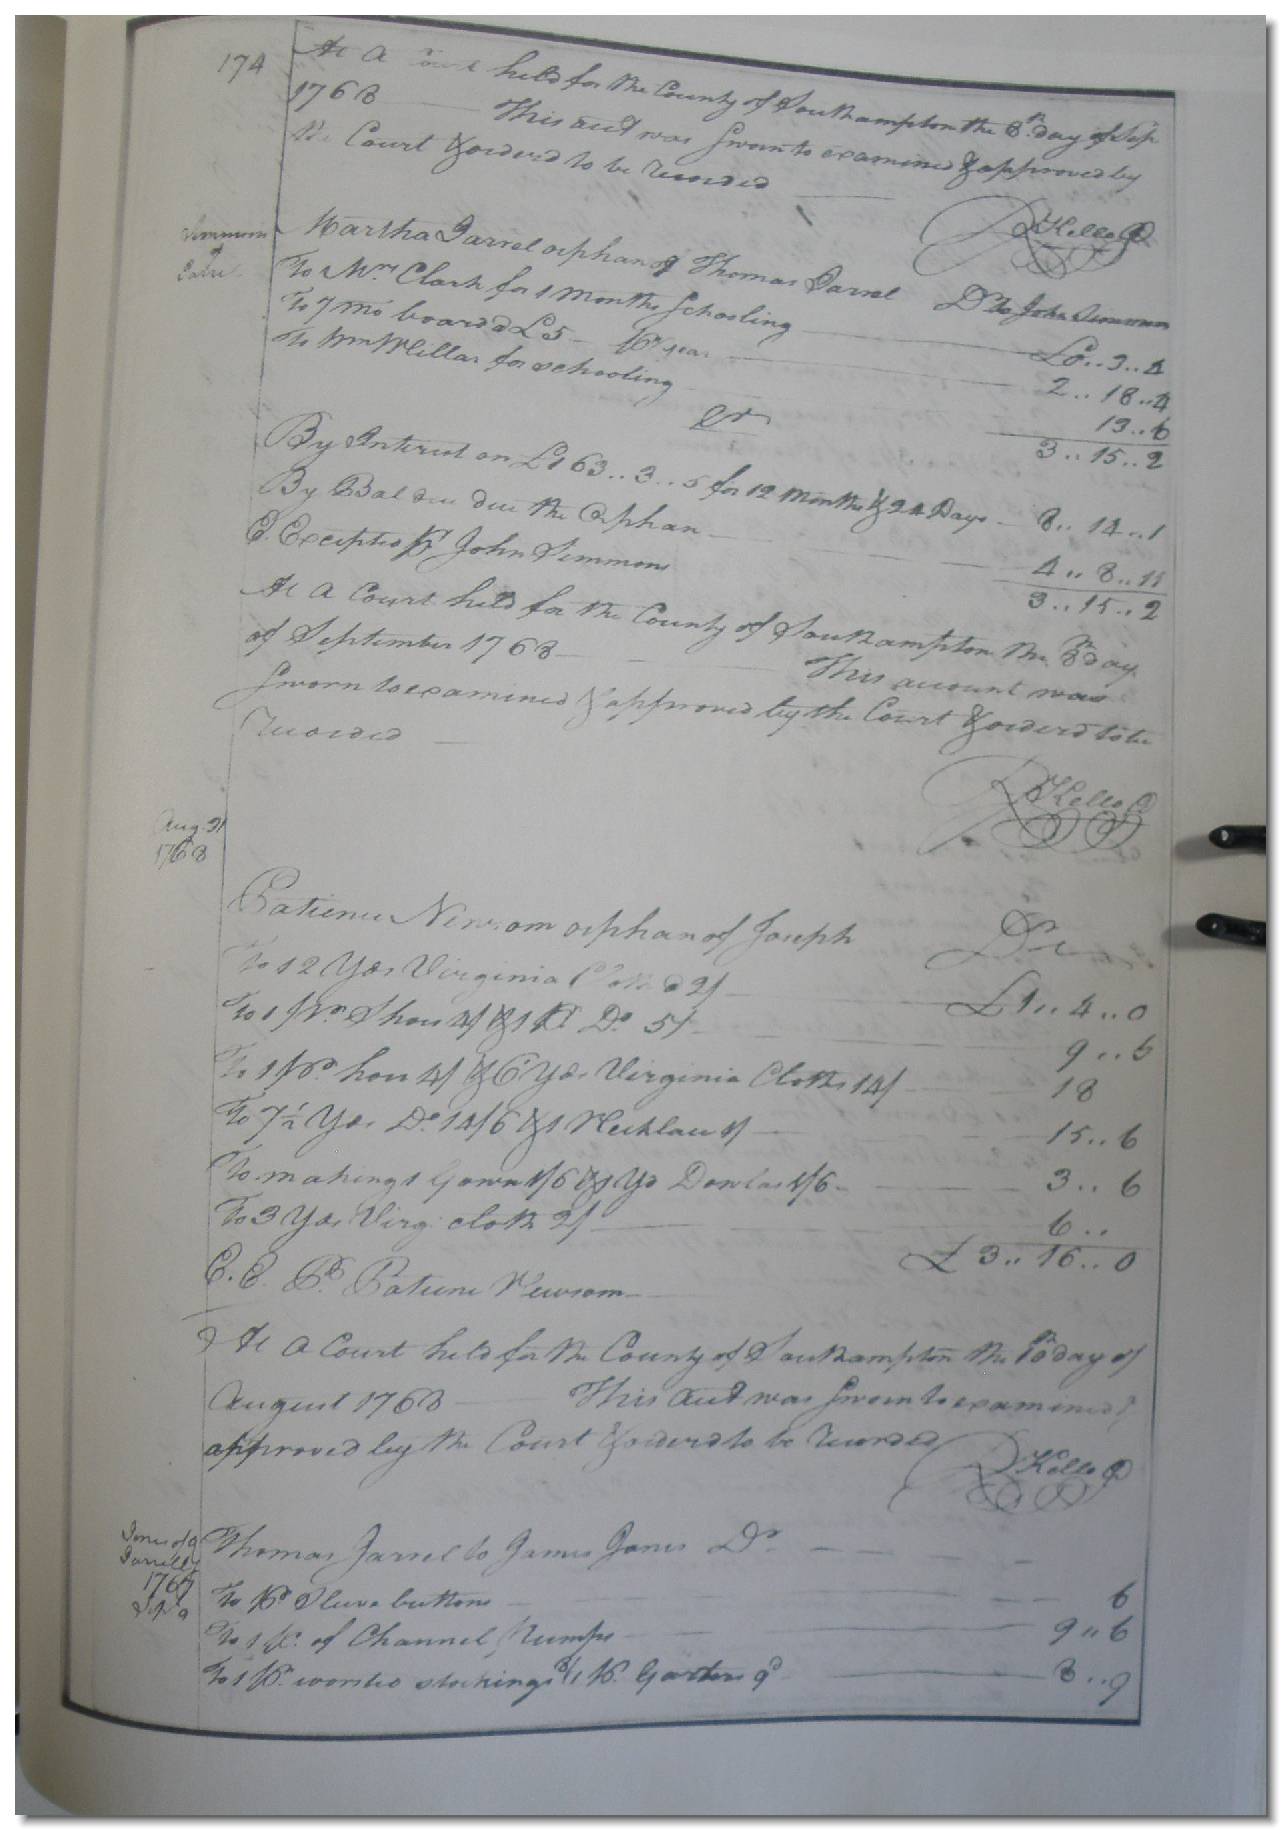 174
At A Court held for the County of Southampton the 8th day of Sep
1768 This acct was Sworn to examined & approved by
the Court & orderd to be Recorded
R Kello Cl
Simmons
Martha Jarrel orphan of Thomas Jarrel Dr to John Simmons
To Mr Clark for 1 Months Schooling £0..3..4
To 7 mo board @ £5 pr year 2..18..4
To Wm Millar for schooling 13..6
3..15..2
Cr
By Interest on £163..3..5 for 12 Months & 24 Days 8..14..1
By Bal due the Orphan 4..8..11
3..15..2
E. Excepted pr John Simmons
At A Court held for the County of Southampton the 8th day
of September 1768 This account was
Sworn to examined & approved by the Court & orderd to be
Recorded
R Kello Cl
Aug 31
1768
Patience Newsom orphan of Joseph Dr
To 12 Yds Virginia Cloth @ 2/ £1..4..0
To 1 pr Shoes 4/ & 1 Do 5/ 9..
To 1 pr Shoes 4/ & 6 Yds Virginia Cloth 14/ 18
To 7½ Yds Do 14/6 & 1 Necklace 1/ 15..6
To making 1 Gown 1/6 & 1 Yd Dowlas 1/6 3..6
To 3 Yds Virg. cloth 2/ 6..
£3..16..0
E. E. Pr Patience Newsom
At A Court held for the County of Southampton the day of
August 1768 This acct was Sworn to examined &
approved by the Court & orderd to be Recorded
R Kello Cl
Jones of
Jarrell
1767
Sep 9
Thomas Jarrel to James Jones Dr
To pr Sleeve buttons 6
To 1 pr of Channel Pumps 9..6
To 1 pr worsted stockings & 1 pr Garters 9d 8..9